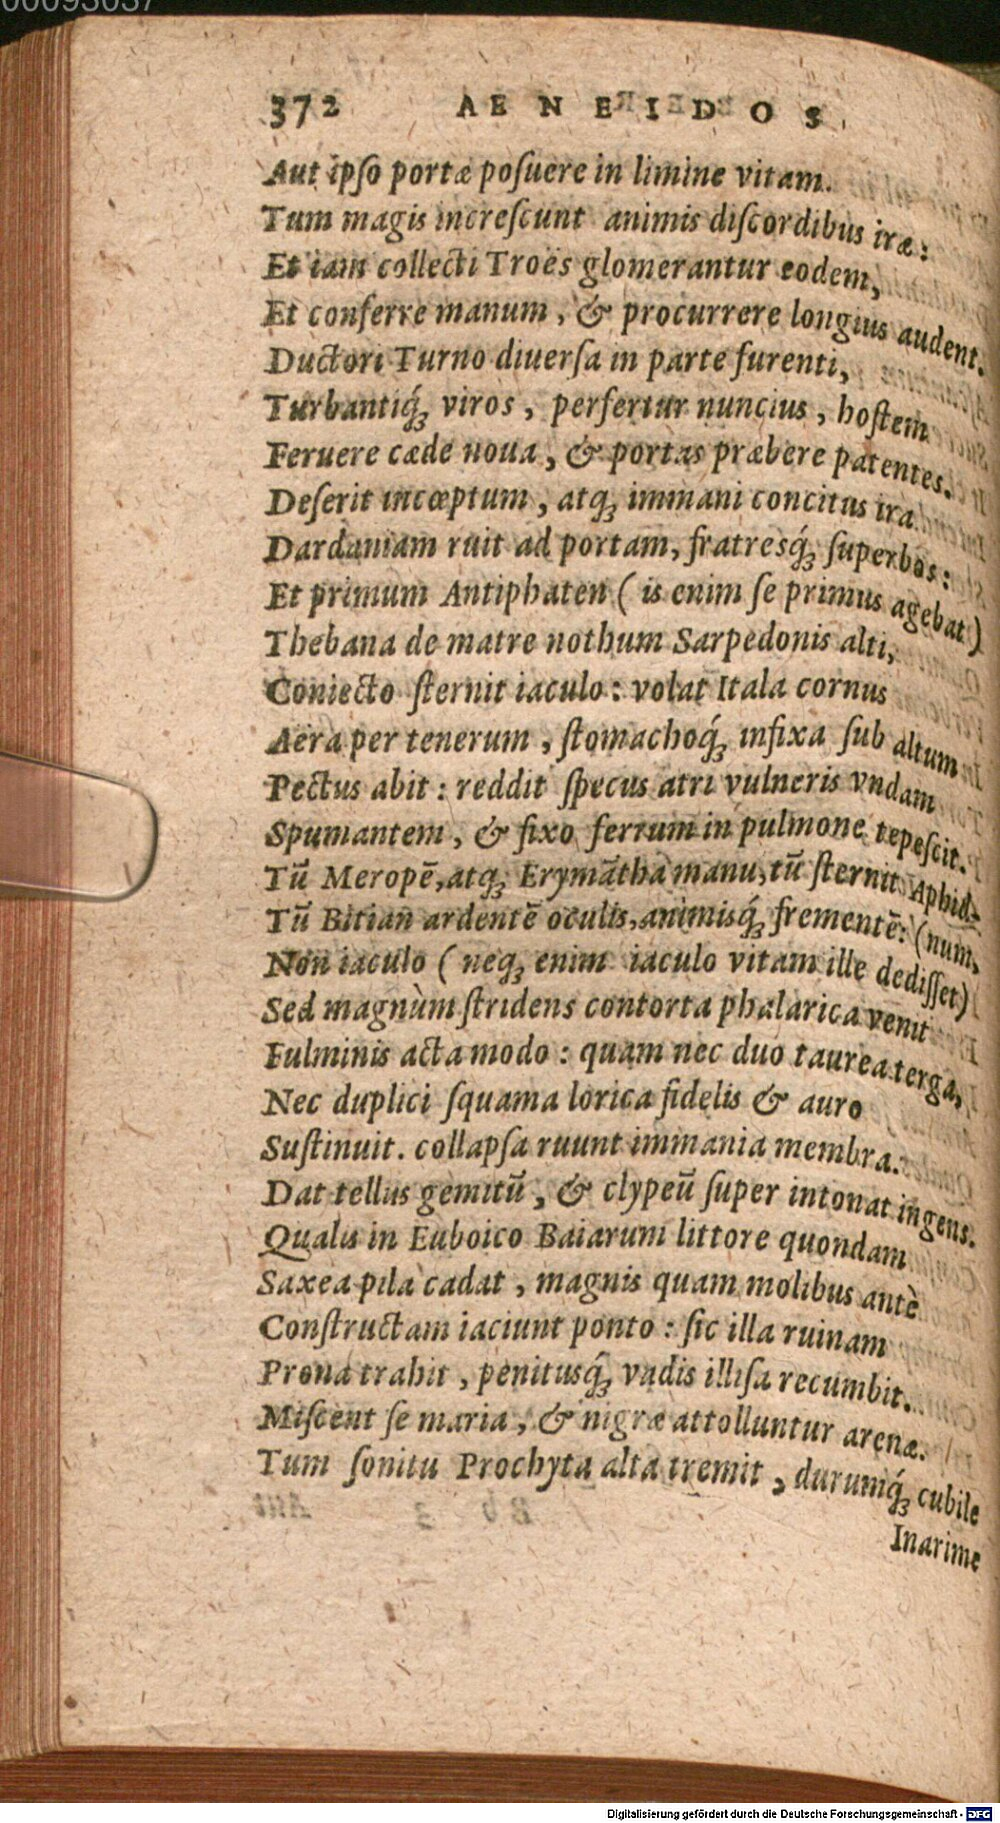 00093037
372 AENEIDOS
Aut ipſo portæ poſuere in limine vitam.
Tum magis increſcunt animis diſcordibus iræ:
Et iam collecti Troës glomerantur eodem,
Et conferre manum, & procurrere longius audent.
Ductori Turno diuerſa in parte furenti,
Turbantiq́ꝫ viros, perfertur nuncius, hoſtem
Feruere cæde noua, & portas præbere patentes.
Deſerit incœptum, atqꝫ immani concitus ira
Dardaniam ruit ad portam, fratresq́ꝫ ſuperbos:
Et primum Antiphaten (is enim ſe primus agebat)
Thebana de matre nothum Sarpedonis alti,
Coniecto ſternit iaculo: volat Itala cornus
Aëra per tenerum, ſtomachoq́ꝫ infixa ſub altum
Pectus abit: reddit ſpecus atri vulneris vndam
Spumantem, & fixo ferrum in pulmone tepeſcit.
Tū Meropē, atqꝫ Erymātha manu, tū ſternit Aphid-
Tū Bitian ardentē oculis, animisq́ꝫ frementē: (num,
Non iaculo (neqꝫ enim iaculo vitam ille dediſſet)
Sed magnùm ſtridens contorta phalarica venit
Fulminis acta modo: quam nec duo taurea terga,
Nec duplici ſquama lorica fidelis & auro
Suſtinuit. collapſa ruunt immania membra.
Dat tellus gemitū, & clypeū ſuper intonat ingens.
Qualis in Euboico Baiarum littore quondam
Saxea pila cadat, magnis quam molibus antè
Conſtructam iaciunt ponto: ſic illa ruinam
Prona trahit, penitusq́ꝫ vadis illiſa recumbit.
Miſcent ſe maria, & nigræ attolluntur arenæ.
Tum ſonitu Prochyta alta tremit, durumq́ꝫ cubile
Inarime
Digitalisierung gefördert durch die Deutsche Forschungsgemeinschaft - DFG